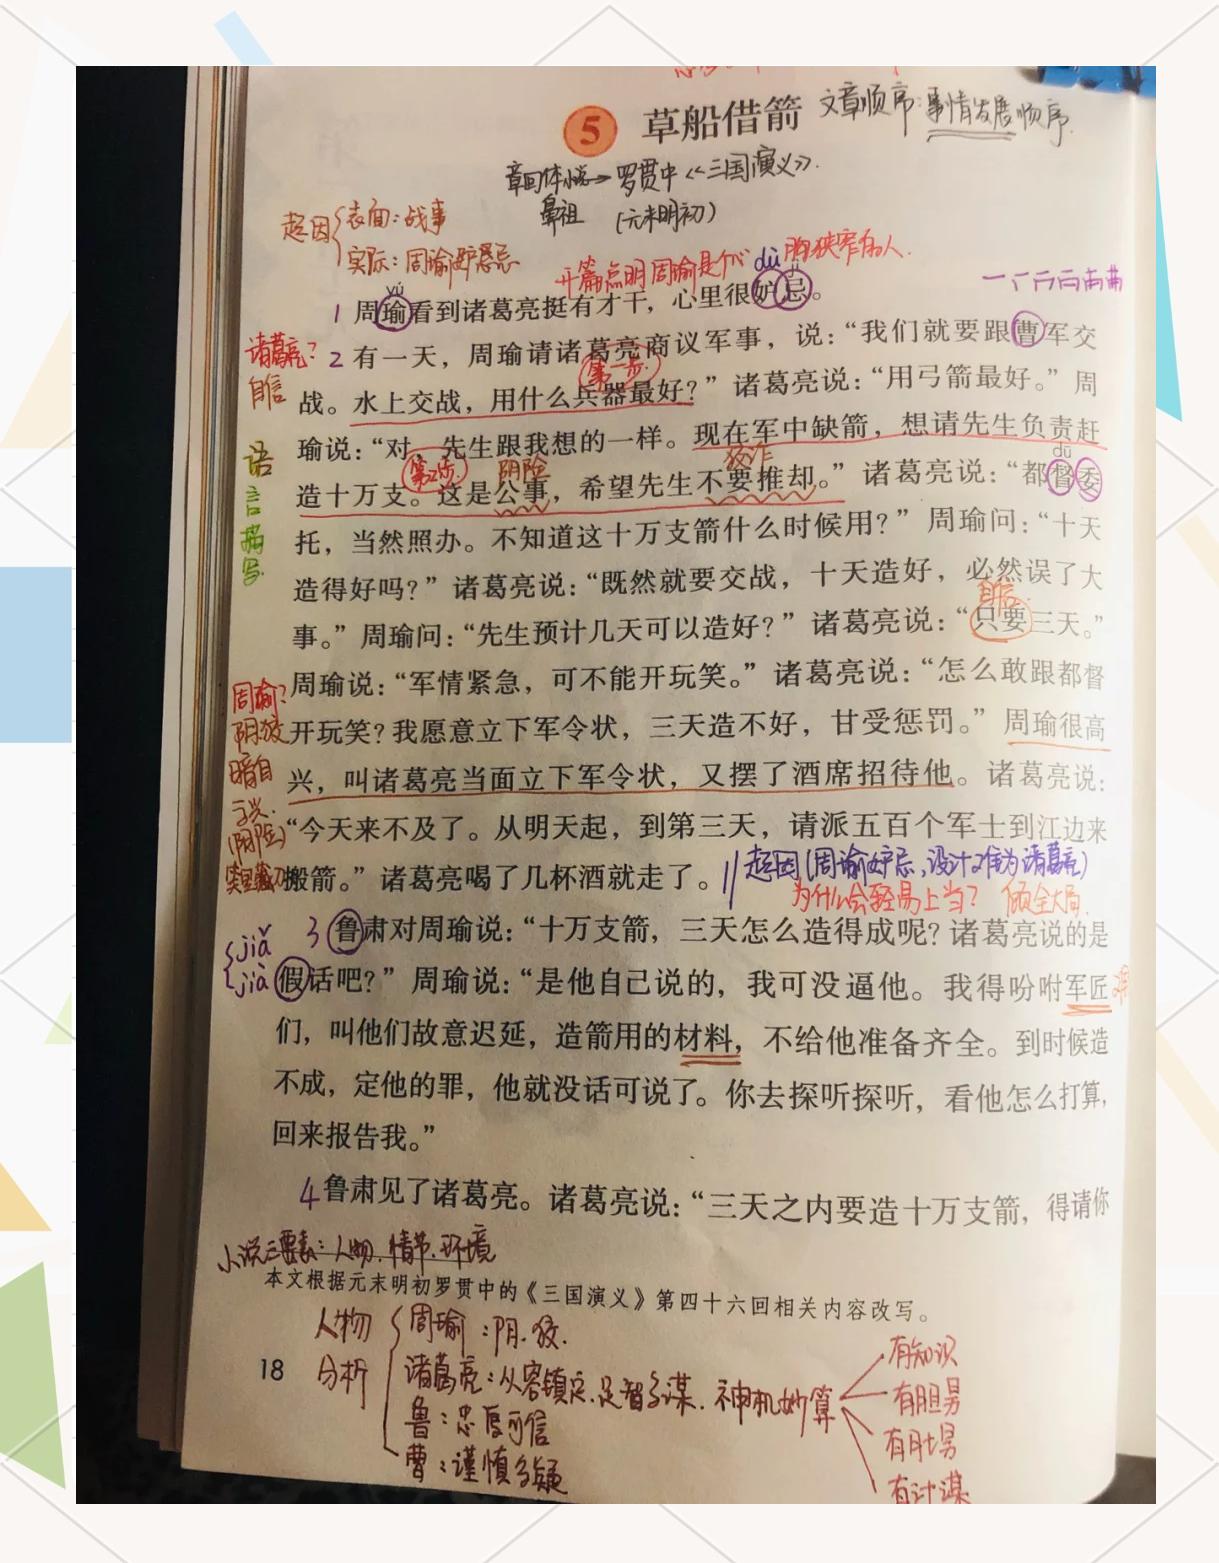 5 草船借箭 文章顺序:事情发展顺序.
章回体小说→罗贯中《三国演义》.
鼻祖 (元末明初)
起因{表面:战事
实际:周瑜妒忌
开篇点明周瑜是个心胸狭窄的人.
yú dù jì
1 周瑜看到诸葛亮挺有才干，心里很妒忌。
诸葛亮?
自信
2 有一天，周瑜请诸葛亮商议军事，说：“我们就要跟曹军交
第一步.
战。水上交战，用什么兵器最好？”诸葛亮说：“用弓箭最好。”周
瑜说：“对，先生跟我想的一样。现在军中缺箭，想请先生负责赶
语言描写.
第2步. 阴险 狡诈 dū
造十万支。这是公事，希望先生不要推却。”诸葛亮说：“都督委
托，当然照办。不知道这十万支箭什么时候用？”周瑜问：“十天
造得好吗？”诸葛亮说：“既然就要交战，十天造好，必然误了大
自信.
事。”周瑜问：“先生预计几天可以造好？”诸葛亮说：“只要三天。”
周瑜?
阴狡
暗自
周瑜说：“军情紧急，可不能开玩笑。”诸葛亮说：“怎么敢跟都督
开玩笑？我愿意立下军令状，三天造不好，甘受惩罚。”周瑜很高
兴，叫诸葛亮当面立下军令状，又摆了酒席招待他。诸葛亮说：
(阴险)
“今天来不及了。从明天起，到第三天，请派五百个军士到江边来
搬箭。”诸葛亮喝了几杯酒就走了。‖起因(周瑜妒忌,设计难为诸葛亮)
为什么会轻易上当? 顾全大局.
3 鲁肃对周瑜说：“十万支箭，三天怎么造得成呢？诸葛亮说的是
{jiǎ
jià
假话吧？”周瑜说：“是他自己说的，我可没逼他。我得吩咐军匠
们，叫他们故意迟延，造箭用的材料，不给他准备齐全。到时候造
不成，定他的罪，他就没话可说了。你去探听探听，看他怎么打算，
回来报告我。”
4 鲁肃见了诸葛亮。诸葛亮说：“三天之内要造十万支箭，得请你
小说三要素:人物.情节.环境
本文根据元末明初罗贯中的《三国演义》第四十六回相关内容改写。
18
人物分析
周瑜:阴.狡.
诸葛亮:从容镇定.足智多谋.神机妙算
鲁:忠厚可信
曹:谨慎多疑
有知识
有胆
有计谋